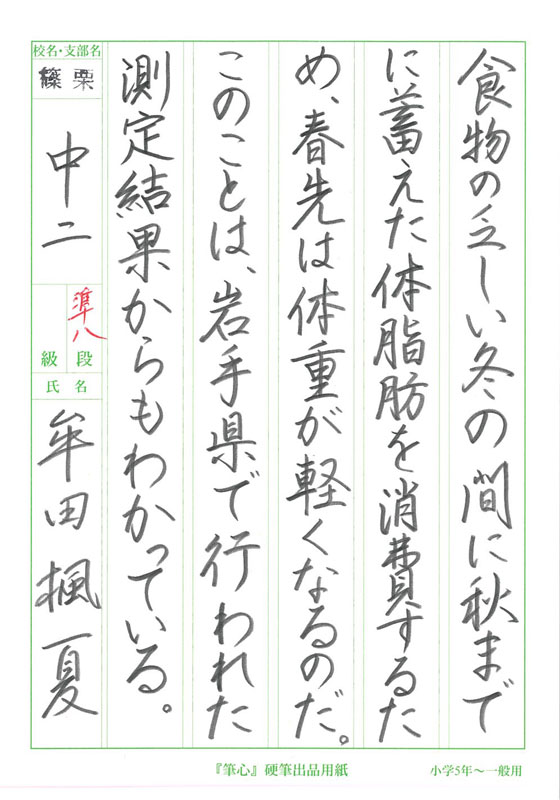 食物の乏しい冬の間に秋まで
に蓄えた体脂肪を消費するた
め、春先は体重が軽くなるのだ。
このことは、岩手県で行われた
測定結果からもわかっている。
校名・支部名
篠栗
中二
段
準八
級
氏名
牟田楓夏
『筆心』硬筆出品用紙
小学5年〜一般用